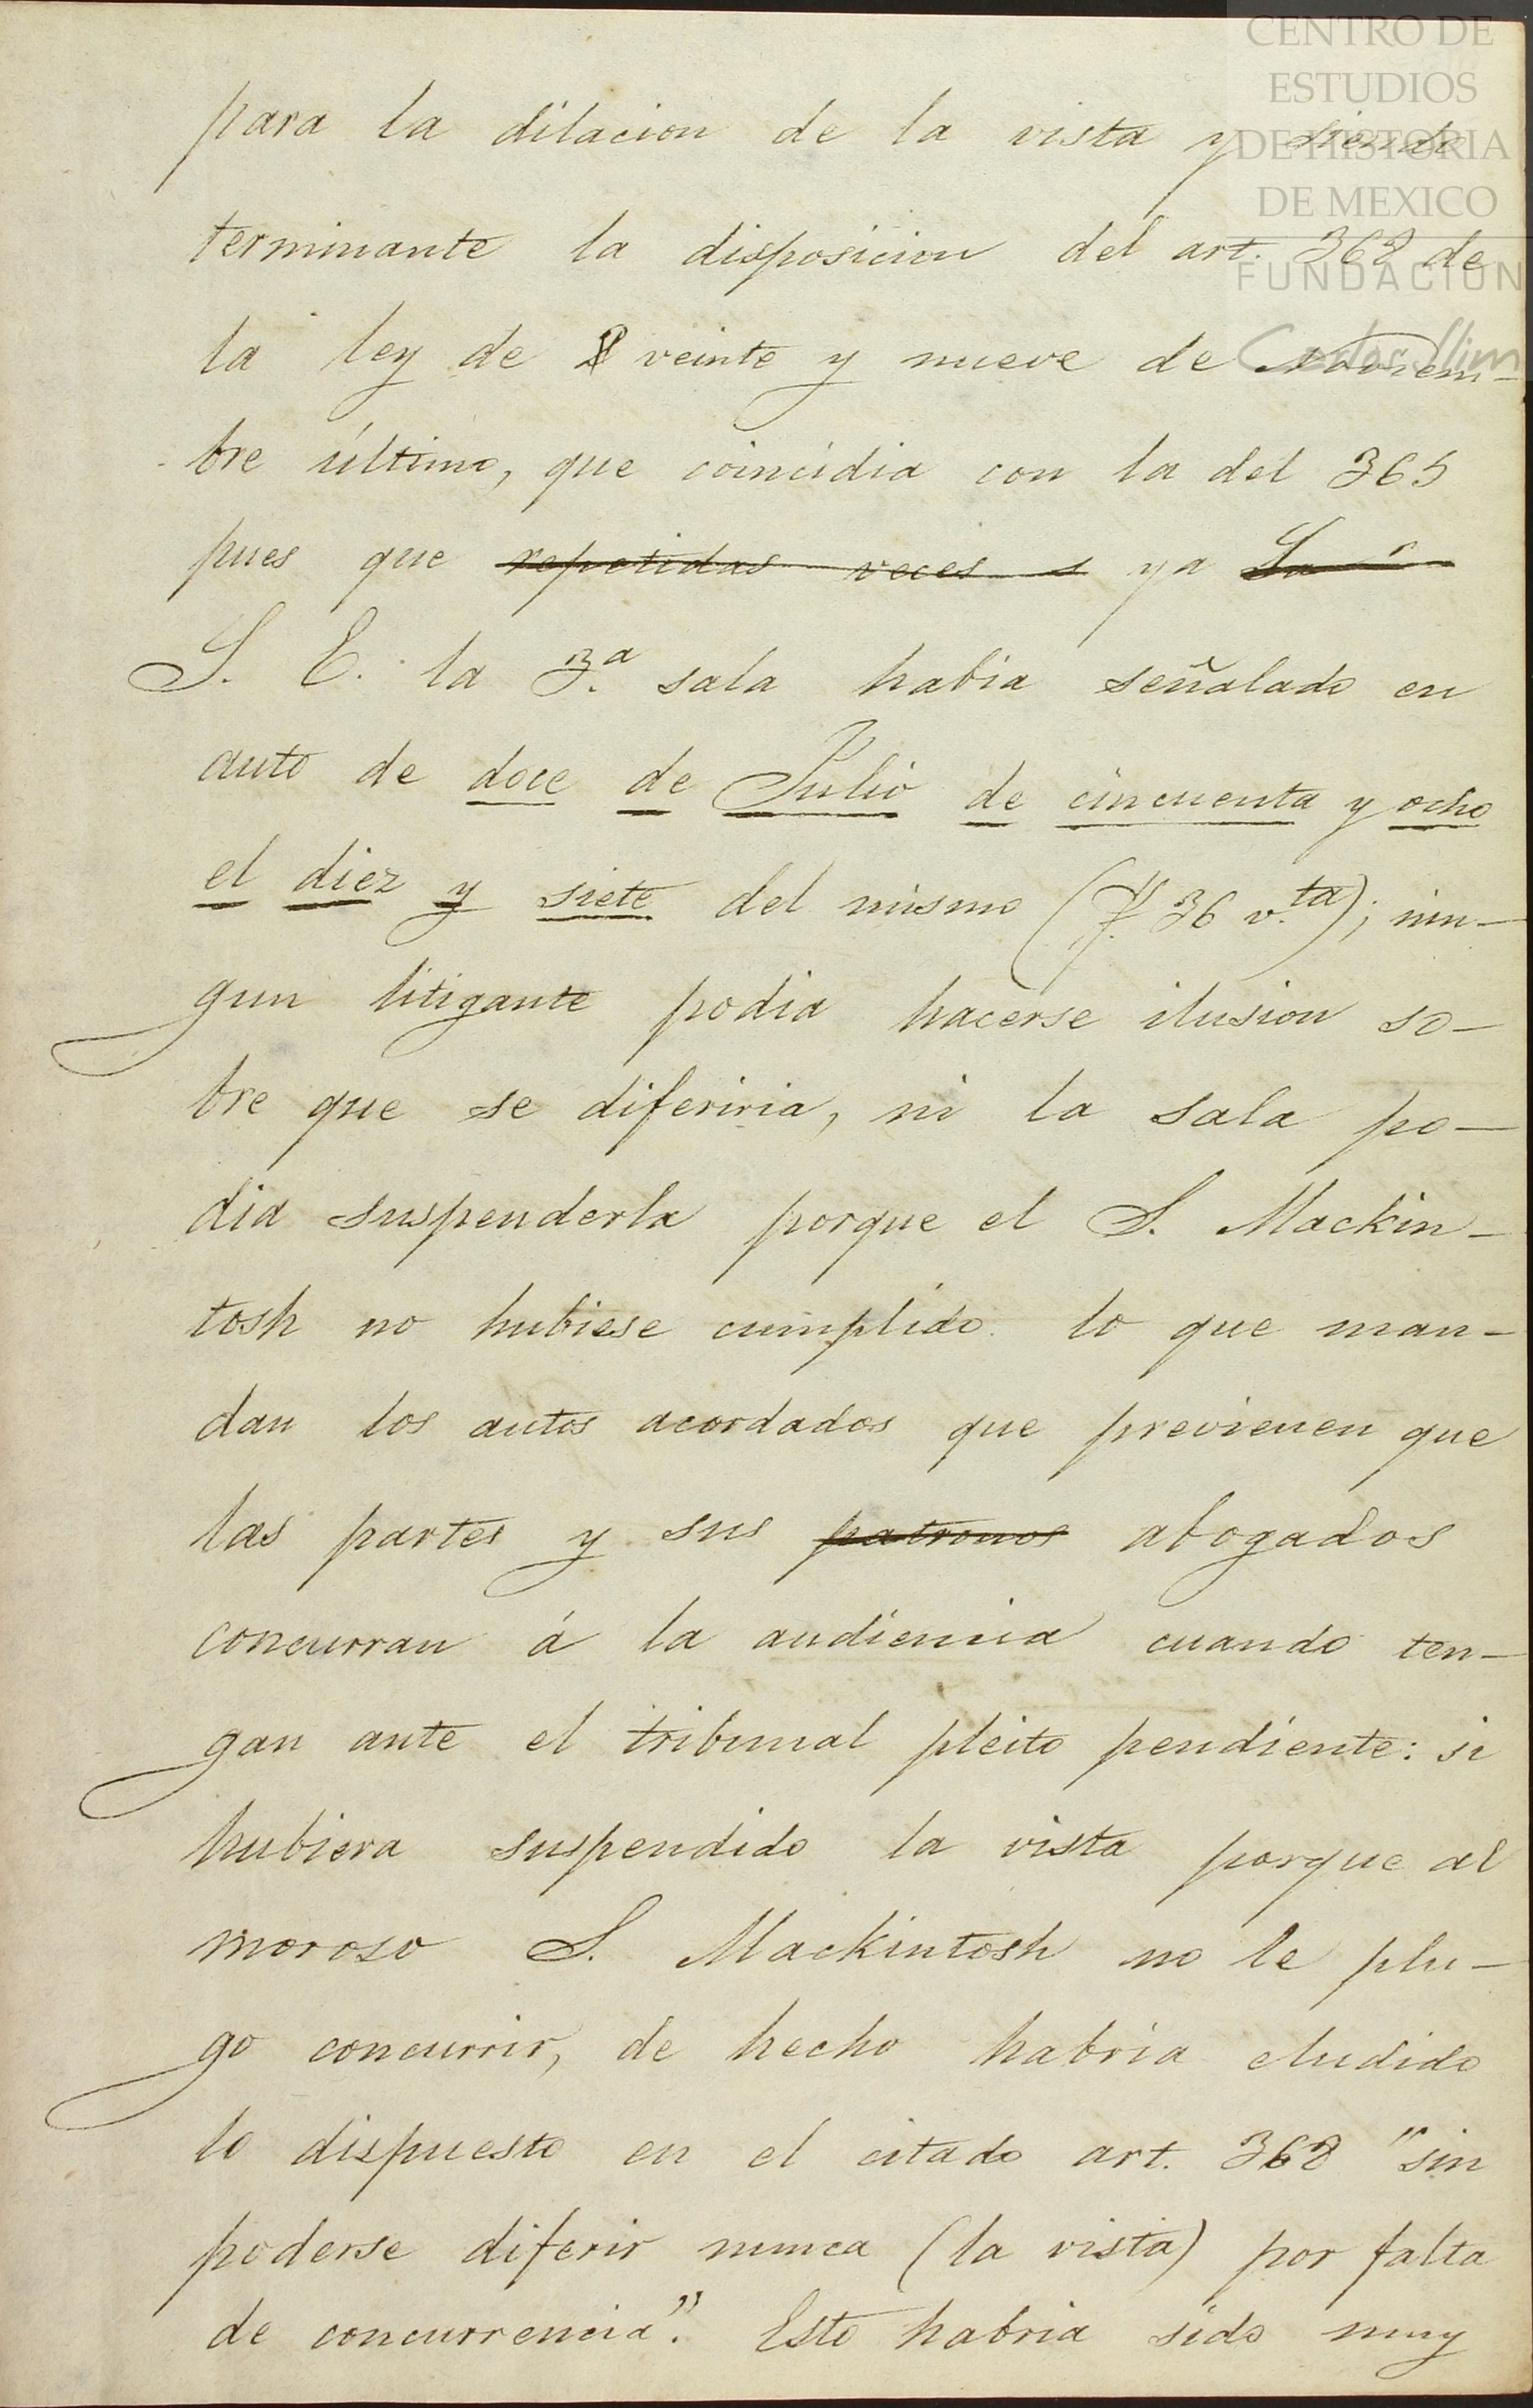 CENTRO DE
ESTUDIOS
DE HISTORIA
DE MEXICO
FUNDACION
Carlos Slim
para la dilacion de la vista y siendo
terminante la disposicion del art. 368 de
la ley de veinte y nueve de Noviem-
bre último, que coincidia con la del 365
pues que repetidas veces s ya La
S. E. la 3.ª sala habia señalado en
auto de doce de Julio de cincuenta y ocho
el diez y siete del mismo (f. 36 v.ta); nin-
gun litigante podia hacerse ilusion so-
bre que se diferiria, ni la sala po-
dia suspenderla porque el S. Mackin-
tosh no hubiese cumplido lo que man-
dan los autos acordados que previenen que
las partes y sus patronos abogados
concurran á la audiencia cuando ten-
gan ante el tribunal pleito pendiente: si
hubiera suspendido la vista porque al
moroso S. Mackintosh no le plu-
go concurrir, de hecho habria eludido
lo dispuesto en el citado art. 368 "sin
poderse diferir nunca (la vista) por falta
de concurrencia". Esto habria sido muy